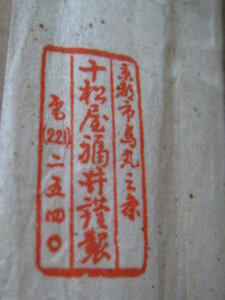 京都市烏丸三条
十松屋福井謹製
電(221)二五四〇